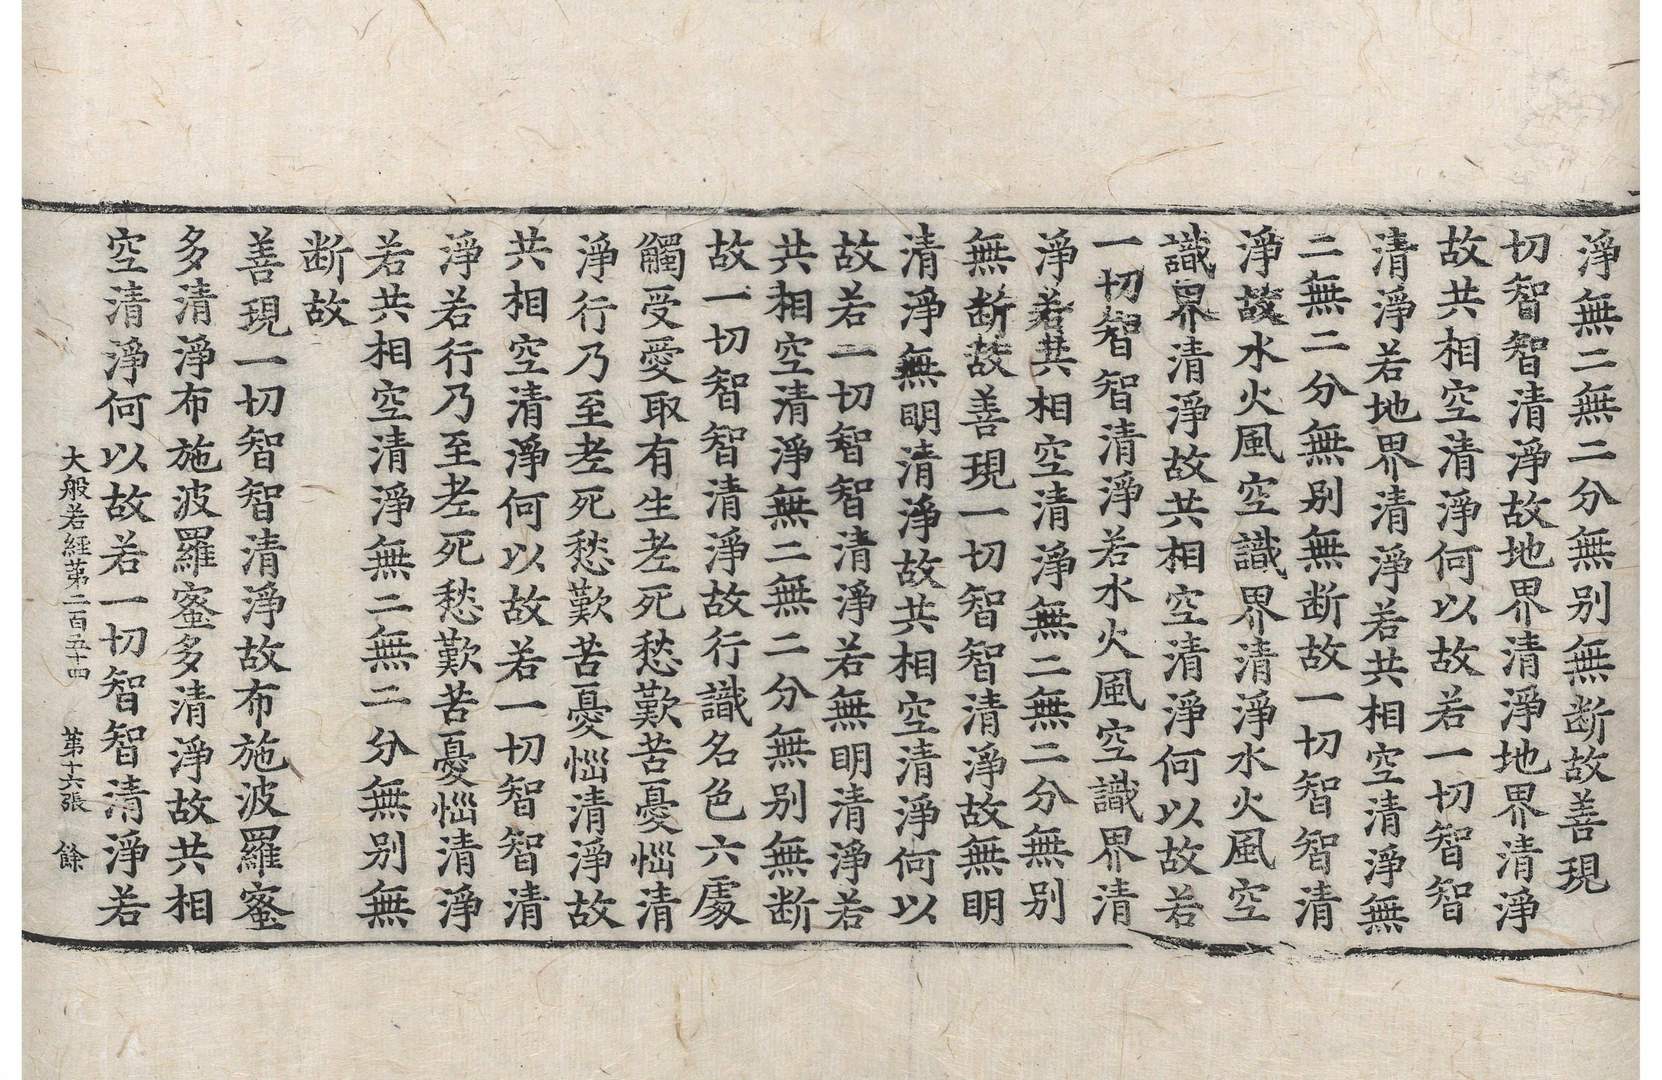 淨無二無二分無別無断故善現
切智智清淨故地界清淨地界清淨
故共相空清淨何以故若一切智智
清淨若地界清淨若共相空清淨無
二無二分無別無断故一切智智清
淨故水火風空識界清淨水火風空
識界清淨故共相空清淨何以故若
一切智智清淨若水火風空識界清
淨若共相空清淨無二無二分無別
無断故善現一切智智清淨故無明
清淨無明清淨故共相空清淨何以
故若一切智智清淨若無明清淨若
共相空清淨無二無二分無別無断
故一切智智清淨故行識名色六處
觸受愛取有生老死愁歎苦憂惱清
淨行乃至老死愁歎苦憂惱清淨故
共相空清淨何以故若一切智智清
淨若行乃至老死愁歎苦憂惱清淨
若共相空清淨無二無二分無別無
断故
善現一切智智清淨故布施波羅蜜
多清淨布施波羅蜜多清淨故共相
空清淨何以故若一切智智清淨若
大般若經第二百五十四 第十六張 餘